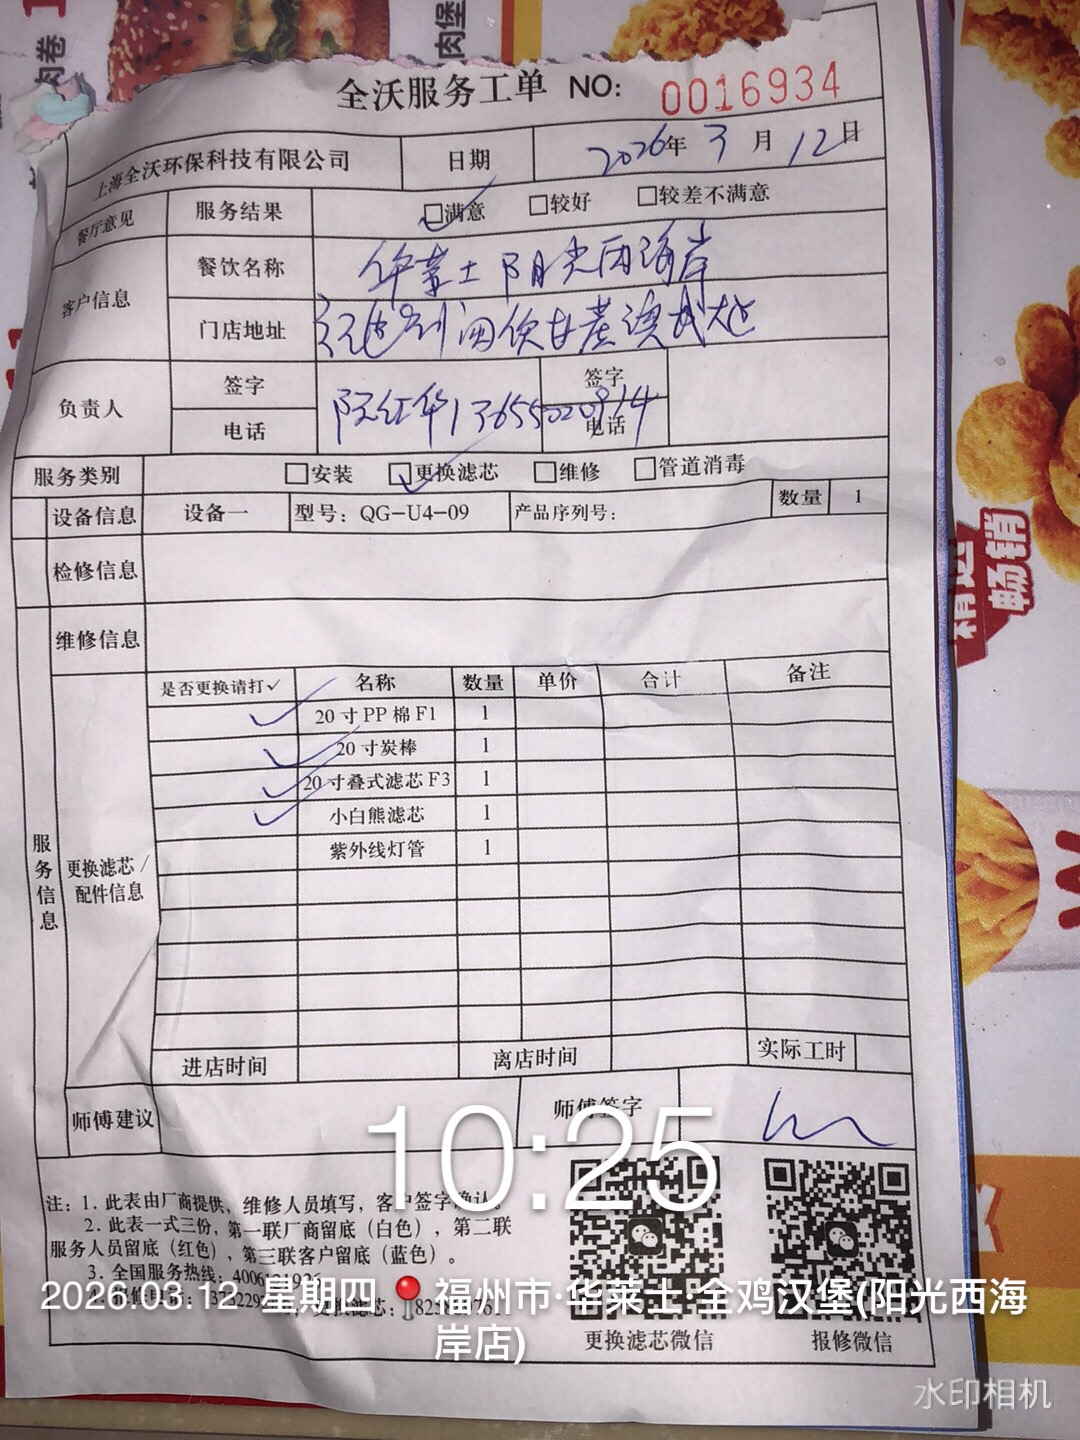 肉卷
肉堡
全沃服务工单 NO: 0016934
上海全沃环保科技有限公司 日期 2026年 3月 12日
餐厅意见 服务结果 ☑满意 □较好 □较差不满意
客户信息 餐饮名称 华莱士阳光西海岸
门店地址
负责人 签字 红华 13655020914 签字
电话 电话
服务类别 □安装 ☑更换滤芯 □维修 □管道消毒
设备信息 设备一 型号: QG-U4-09 产品序列号: 数量 1
检修信息
维修信息
是否更换请打✓ 名称 数量 单价 合计 备注
✓ 20寸PP棉F1 1
✓ 20寸炭棒 1
✓ 20寸叠式滤芯F3 1
✓ 小白熊滤芯 1
紫外线灯管 1
服务信息
更换滤芯/
配件信息
进店时间 离店时间 实际工时
师傅建议 师傅签字
10:25
注: 1. 此表由厂商提供, 维修人员填写, 客户签字确认。
2. 此表一式三份, 第一联厂商留底 (白色), 第二联
服务人员留底 (红色), 第三联客户留底 (蓝色)。
3. 全国服务热线:
报修电话: 更换滤芯:
2026.03.12 星期四 福州市·华莱士·全鸡汉堡(阳光西海
岸店)
更换滤芯微信 报修微信
水印相机
畅销